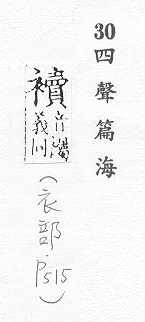 30四聲篇海
襩音讀
義同
(衣部.P515)